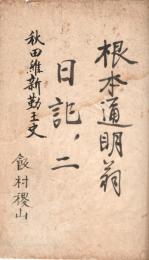 根本通明翁
日記、二
秋田維新勤王史
飯村稷山